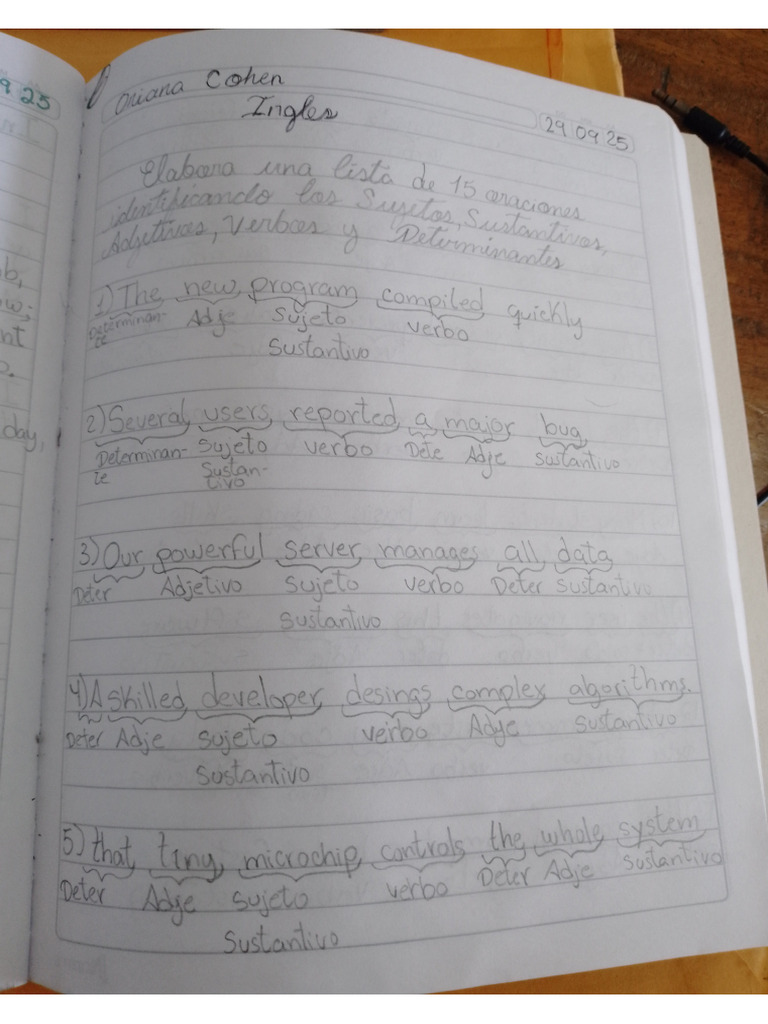 9 25
Oriana Cohen
Ingles
29 09 25
Elabora una lista de 15 oraciones
identificando los Sujetos, Sustantivos,
Adjetivos, Verbos y Determinantes
1) The new program compiled quickly
Determinan- Adje sujeto verbo
te
sustantivo
2) Several users reported a major bug
Determinan- sujeto verbo Dete Adje sustantivo
te Sustan-
tivo
3) Our powerful server manages all data
Deter Adjetivo sujeto verbo Deter sustantivo
sustantivo
4) A skilled developer desings complex algorithms.
Deter Adje sujeto verbo Adje sustantivo
sustantivo
5) that tiny microchip controls the whole system
Deter Adje sujeto verbo Deter Adje sustantivo
sustantivo
b,
w;
nt
o.
day,